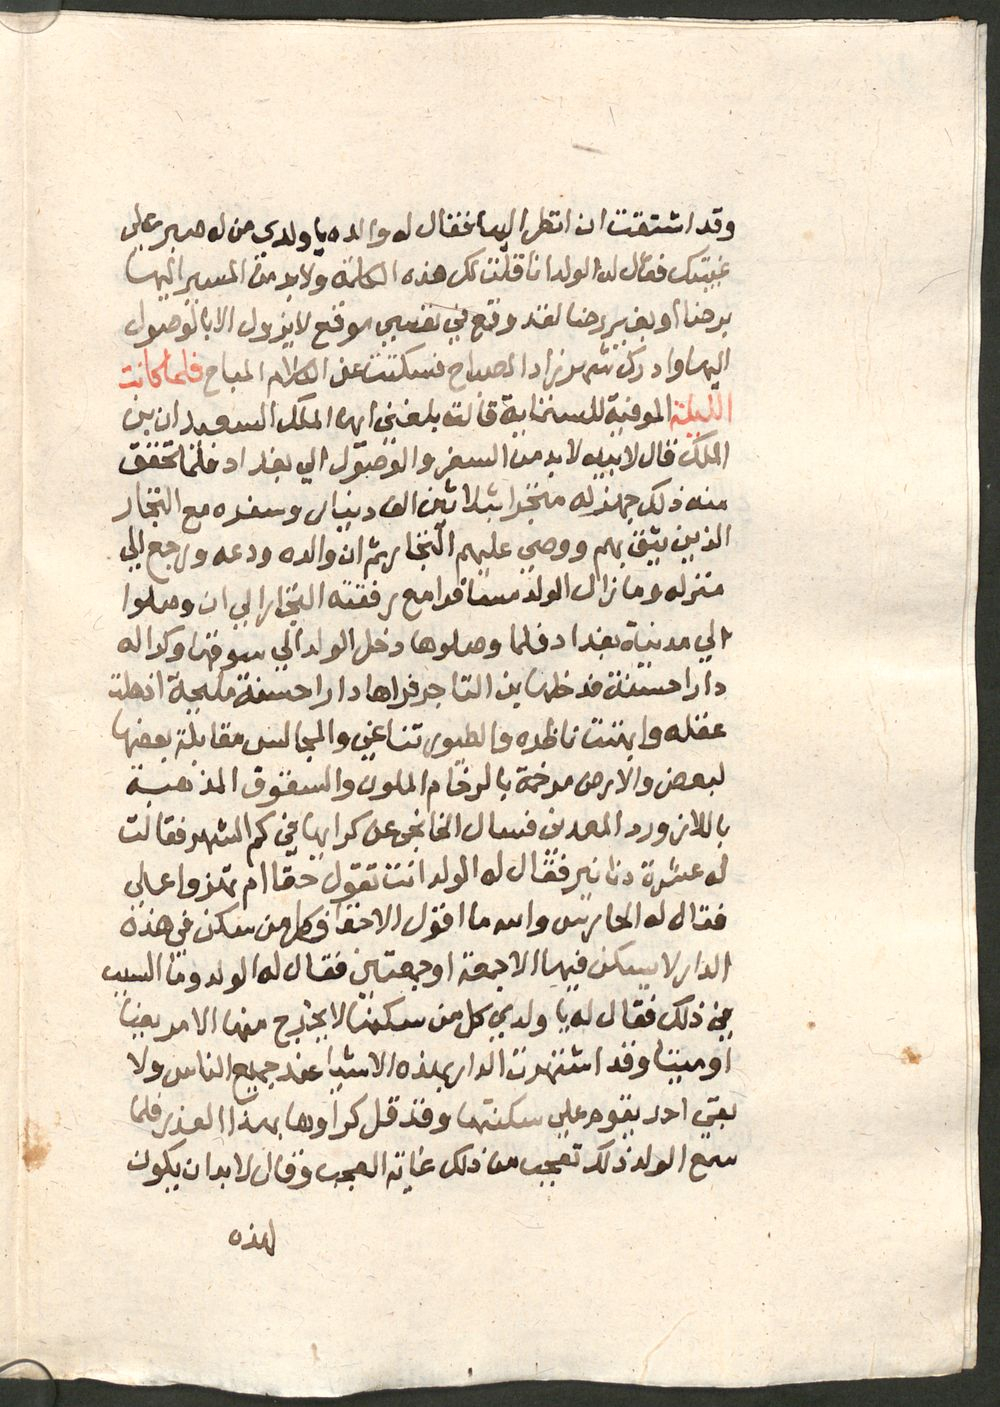 وقد اشتقت ان انظر اليها فقال له والده يا ولدي من له صبر علي
غيبتك فقال له الولد انا قلت لك هذه الكلمة ولا بد من المسير اليها
برضا او بغير رضا لقد وقع في نفسي موقع لا يزول الا بالوصول
اليها وادرك شهرزاد الصباح فسكتت عن الكلام المباح فلما كانت
الليلة الموفية للستماية قالت بلغني ايها الملك السعيد ان بن
الملك قال لابيه لا بد من السفر والوصول الي بغداد فلما تحقق
منه ذلك جهز له متجرا بثلاثين الف دينار وسفره مع التجار
الذين يثق بهم ووصي عليهم التجار ثم ان والده ودعه ورجع الي
منزله وما زال الولد مسافرا مع رفقته التجار الي ان وصلوا
الي مدينة بغداد فلما وصلوها دخل الولد الي سوقها وكرا له
دارا حسنة فدخلها بن التاجر فراها دارا حسنة مليحة اذهلت
عقله وابهتت ناظره والطيور تناغي والمجالس مقابلة بعضها
لبعض والارض مرخمة بالرخام الملون والسقوف المذهبة
باللازورد المعدني فسال الخانجي عن كرايها في كم الشهر فقالت
له عشرة دنانير فقال له الولد انت تقول حقا ام تهزوا علي
فقال له الحارس والله ما اقول الا حقا فكل من سكن في هذه
الدار لا يسكن فيها الا جمعة او جمعتين فقال له الولد وما السبب
في ذلك فقال له يا ولدي كل من سكنها لا يخرج منها الا مريضا
او ميتا وقد اشتهرت الدار بهذه الاشيا عند جميع الناس ولا
بقي احد يقوم علي سكنتها وقد قل كراوها بهذا العذر فلما
سمع الولد ذلك تعجب من ذلك غاية العجب وقال لا بد ان يكون
لهذه